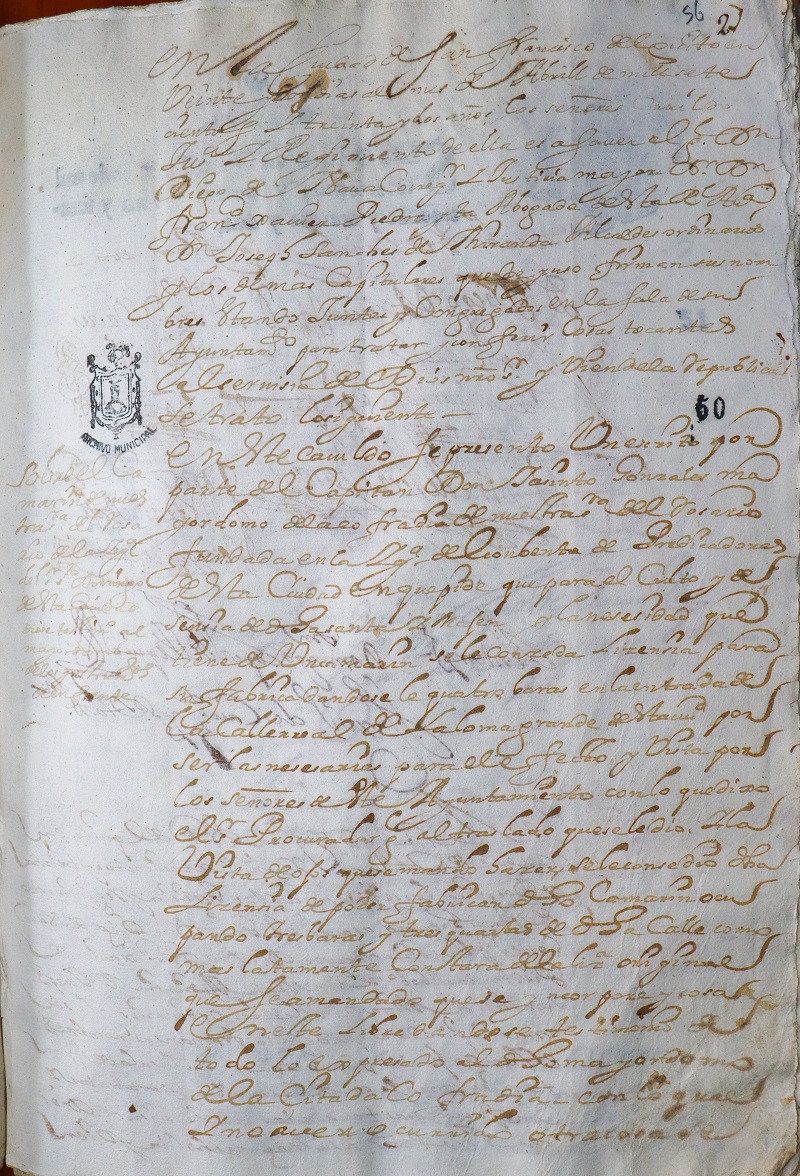 56 27
En la Ciudad de San Francisco del Quito en
Veinte y dias del mes de Abrill de mill sete
cientos y treinta y dos años los señores Cavildo
Just.ª y Regimiento de ella es a saver el g.l Dn
Diego de Nava Correg.r y Justicia mayor Dr. Dn
Fran.co Xavier Piedrahita Abogado de esta Rl Aud.a
Dn Joseph Sanches de Miranda Alcaldes ordinarios
y los demas Capitulares que de yuso firman sus nom
bres. estando Juntos y Congregados en la sala de su
Ayuntam.to para tratar y conferir Cosas tocantes
al servisio de Dios nro s.r y Vien de la Republica
se trato lo siguiente —
ARCHIVO MUNICIPAL
60
En este Cavildo se presento Un escrito por
parte del Capitan Don Jasinto Gonzales ma
yordomo de la cofradia de nuestra s.ra del Rosario
fundada en la Yg.a del Conbento de Predicadores
de esta Ciudad en que pide que para el Culto y de
sensia de dha santa Ymagen y la nesesidad que
tiene de Un camarin se le conzeda Lizensia para
su fabrica dandosele quatro baras en la entrada de
la Calle real de la loma grande de esta ciud por
ser las nesesarias para el efecto y Vista por
los señores de este Ayuntamiento con lo que dixo
el s.r Procurador g.l al traslado que se le dio. Y la
Vista de ojos que se mando hazer, se le consedio dha
Lizensia de poder fabricar dho Camarin ocu
pando tres baras y tres quartas de dha Calle como
mas latamente Constara de la liz.a original
que se a mandado que se yncorpore y cosa
en este Libro dandose testimonio de
todo lo expresado al dho mayordomo
de la Citada Cofradia con lo qual
y no aver ocurrido otra cosa se
Sobre el Ca
marin de nues
tra s.ra del Rosa
rio de la Yglª
de S.to Domingo
de esta Ciudad
al
mayordomo